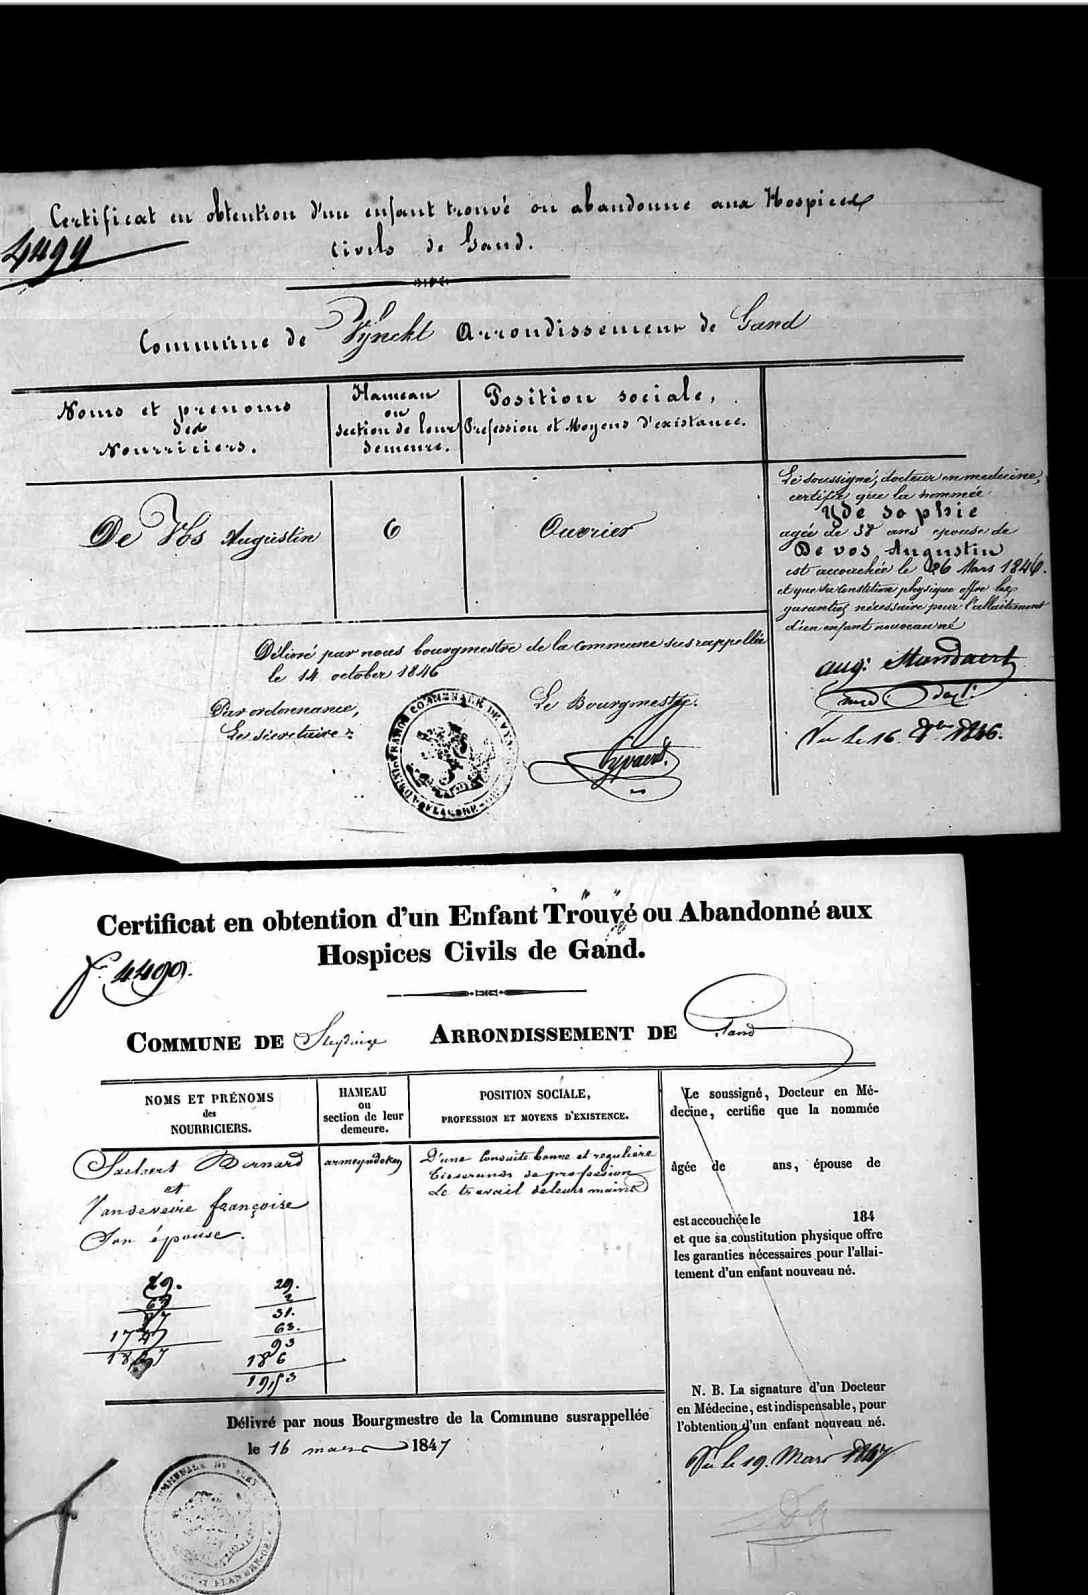 Certificat en obtention d'un enfant trouvé ou abandonne aux Hospices
civils de Gand.
4499
Commune de Vynckt Arrondissement de Gand
Noms et prenoms
des
Nourriciers.
Hameau
ou
section de leur
demeure.
Position sociale,
Profession et Moyens d'existance.
De Vos Augustin
6
Ouvrier
Le soussigné, docteur en medecine,
certifie que la nommée
Yde sophie
agée de 38 ans epouse de
De vos Augustin
est accouchée le 26 Mars 1846.
et que sa constition physique offre les
garanties nécessaire pour l'allaitement
d'un enfant nouveau né
aug: Standaert
med. doct:
Vu le 16. 8bre 1846.
Délivré par nous bourgmestre de la commune susrappellée
le 14 october 1846
Par ordonnance,
Le secretaire:
Le Bourgmestre.
Certificat en obtention d'un Enfant Trouvé ou Abandonné aux
Hospices Civils de Gand.
f. 4499.
COMMUNE DE Sleydinge ARRONDISSEMENT DE Gand
NOMS ET PRÉNOMS
des
NOURRICIERS.
HAMEAU
ou
section de leur
demeure.
POSITION SOCIALE,
PROFESSION ET MOYENS D'EXISTENCE.
Bernard
et
Vandeveire françoise
Son épouse.
D'une Conduite bonne et reguliere
tisserands de profession
Le travail de leurs mains
29.
2
31.
63.
93
186
1953
Le soussigné, Docteur en Mé-
decine, certifie que la nommée
âgée de ans, épouse de
est accouchée le 184
et que sa constitution physique offre
les garanties nécessaires pour l'allai-
tement d'un enfant nouveau né.
N. B. La signature d'un Docteur
en Médecine, est indispensable, pour
l'obtention d'un enfant nouveau né.
Vu le 19. Mars 1847
Délivré par nous Bourgmestre de la Commune susrappellée
le 16 mars 1847